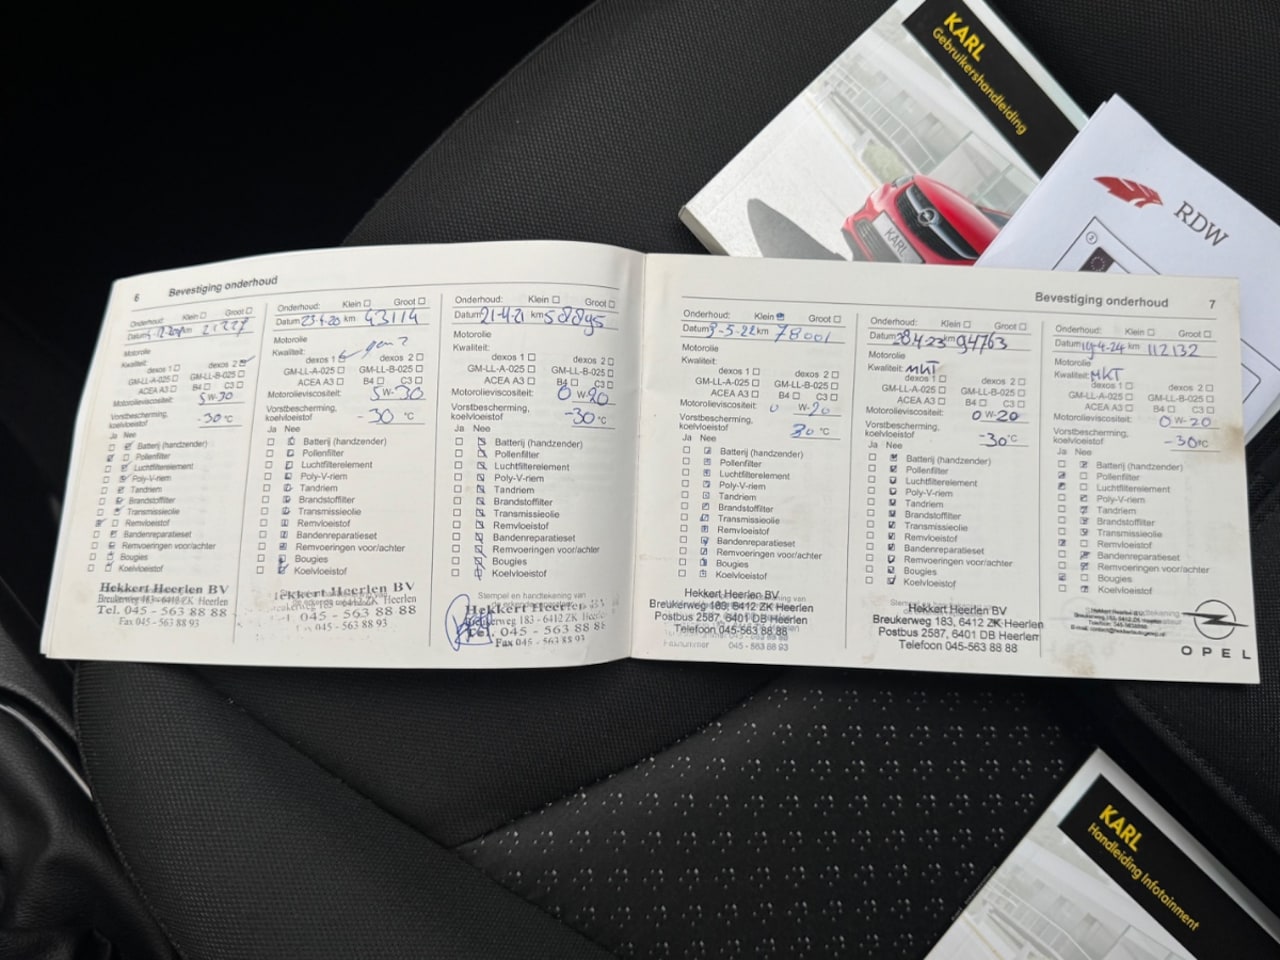 KARL
Gebruikershandleiding
RDW
KARL
6 Bevestiging onderhoud
Onderhoud: Klein Groot
Datum km 21227
Motorolie
Kwaliteit:
dexos 1 dexos 2
GM-LL-A-025 GM-LL-B-025
ACEA A3 B4 C3
Motorolieviscositeit: 5W-30
Vorstbescherming,
koelvloeistof -30°C
Ja Nee
Batterij (handzender)
Pollenfilter
Luchtfilterelement
Poly-V-riem
Tandriem
Brandstoffilter
Transmissieolie
Remvloeistof
Bandenreparatieset
Remvoeringen voor/achter
Bougies
Koelvloeistof
Hekkert Heerlen BV
Breukerweg 183, 6412 ZK Heerlen
Tel. 045 - 563 88 88
Fax 045 - 563 88 93
Onderhoud: Klein Groot
Datum 23-4-20 km 43114
Motorolie
Kwaliteit:
dexos 1 dexos 2
GM-LL-A-025 GM-LL-B-025
ACEA A3 B4 C3
Motorolieviscositeit: 5W-30
Vorstbescherming,
koelvloeistof -30 °C
Ja Nee
Batterij (handzender)
Pollenfilter
Luchtfilterelement
Poly-V-riem
Tandriem
Brandstoffilter
Transmissieolie
Remvloeistof
Bandenreparatieset
Remvoeringen voor/achter
Bougies
Koelvloeistof
Hekkert Heerlen BV
045 - 563 88 88
045 - 563 88 93
Onderhoud: Klein Groot
Datum 21-4-21 km 58895
Motorolie
Kwaliteit:
dexos 1 dexos 2
GM-LL-A-025 GM-LL-B-025
ACEA A3 B4 C3
Motorolieviscositeit: 0W-20
Vorstbescherming,
koelvloeistof -30°C
Ja Nee
Batterij (handzender)
Pollenfilter
Luchtfilterelement
Poly-V-riem
Tandriem
Brandstoffilter
Transmissieolie
Remvloeistof
Bandenreparatieset
Remvoeringen voor/achter
Bougies
Koelvloeistof
Stempel en handtekening van
Hekkert Heerlen BV
Breukerweg 183 - 6412 ZK Heerlen
Tel. 045 - 563 88 88
Fax 045 - 563 88 93
Bevestiging onderhoud 7
Onderhoud: Klein Groot
Datum 3-5-22 km 78001
Motorolie
Kwaliteit:
dexos 1 dexos 2
GM-LL-A-025 GM-LL-B-025
ACEA A3 B4 C3
Motorolieviscositeit: 0 W-20
Vorstbescherming,
koelvloeistof 30°C
Ja Nee
Batterij (handzender)
Pollenfilter
Luchtfilterelement
Poly-V-riem
Tandriem
Brandstoffilter
Transmissieolie
Remvloeistof
Bandenreparatieset
Remvoeringen voor/achter
Bougies
Koelvloeistof
Hekkert Heerlen BV
Breukerweg 183, 6412 ZK Heerlen
Postbus 2587, 6401 DB Heerlen
Telefoon 045-563 88 88
045 - 563 88 93
Onderhoud: Klein Groot
Datum 28-4-23 km 94763
Motorolie
Kwaliteit: MKT
dexos 1 dexos 2
GM-LL-A-025 GM-LL-B-025
ACEA A3 B4 C3
Motorolieviscositeit: 0W-20
Vorstbescherming,
koelvloeistof -30°C
Ja Nee
Batterij (handzender)
Pollenfilter
Luchtfilterelement
Poly-V-riem
Tandriem
Brandstoffilter
Transmissieolie
Remvloeistof
Bandenreparatieset
Remvoeringen voor/achter
Bougies
Koelvloeistof
Hekkert Heerlen BV
Breukerweg 183, 6412 ZK Heerlen
Postbus 2587, 6401 DB Heerlen
Telefoon 045-563 88 88
Onderhoud: Klein Groot
Datum 19-4-24 km 112132
Motorolie
Kwaliteit: MKT
dexos 1 dexos 2
GM-LL-A-025 GM-LL-B-025
ACEA A3 B4 C3
Motorolieviscositeit: 0W-20
Vorstbescherming,
koelvloeistof -30°C
Ja Nee
Batterij (handzender)
Pollenfilter
Luchtfilterelement
Poly-V-riem
Tandriem
Brandstoffilter
Transmissieolie
Remvloeistof
Bandenreparatieset
Remvoeringen voor/achter
Bougies
Koelvloeistof
OPEL
KARL
Handleiding Infotainment